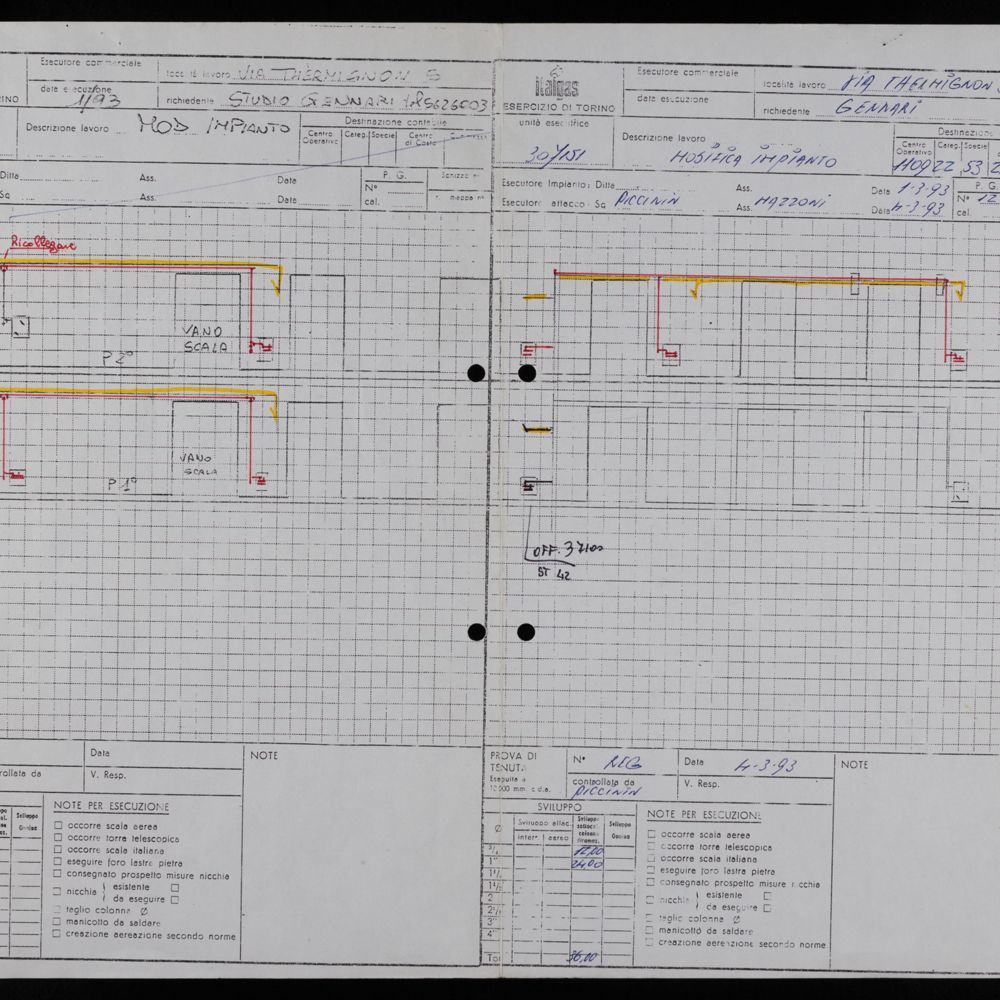 Esecutore commerciale
data esecuzione
1/93
località lavoro VIA THERMIGNON 5
richiedente STUDIO GENNARI
Descrizione lavoro MOD IMPIANTO
Destinazione contabile
Centro Operativo
Categ.
Specie
Centro di Costo
Ditta
Ass.
Data
Sq
Ass.
Data
P. G.
N°
cal.
Ricollegare
VANO
SCALA
P 2°
VANO
SCALA
P 1°
Data
V. Resp.
NOTE
NOTE PER ESECUZIONE
occorre scala aerea
occorre torre telescopica
occorre scala italiana
eseguire foro lastra pietra
consegnato prospetto misure nicchia
nicchia
esistente
da eseguire
taglio colonna Ø
manicotto da saldare
creazione aereazione secondo norme
italgas
ESERCIZIO DI TORINO
unità esecutrice
30/151
Esecutore commerciale
data esecuzione
località lavoro VIA THERMIGNON
richiedente GENNARI
Descrizione lavoro
MODIFICA IMPIANTO
Centro Operativo
Categ.
Specie
110922 53
Esecutore Impianto: Ditta
Ass.
Data 1-3-93
Esecutore attacco: Sq PICCININ
Ass. MAZZONI
Data 4-3-93
P. G.
N° 12
cal.
OFF. 37100
ST 42
PROVA DI TENUTA
N° NEG
Data 4-3-93
controllata da
PICCININ
V. Resp.
NOTE
SVILUPPO
Sviluppo allac.
interr.
aereo
Sviluppo
Ø
3/4 12,00
1" 24,00
1"1/4
1"1/2
2"
2"1/2
3"
4"
Tot 36,00
NOTE PER ESECUZIONE
occorre scala aerea
occorre torre telescopica
occorre scala italiana
eseguire foro lastra pietra
consegnato prospetto misure nicchia
nicchia
esistente
da eseguire
taglio colonna Ø
manicotto da saldare
creazione aereazione secondo norme